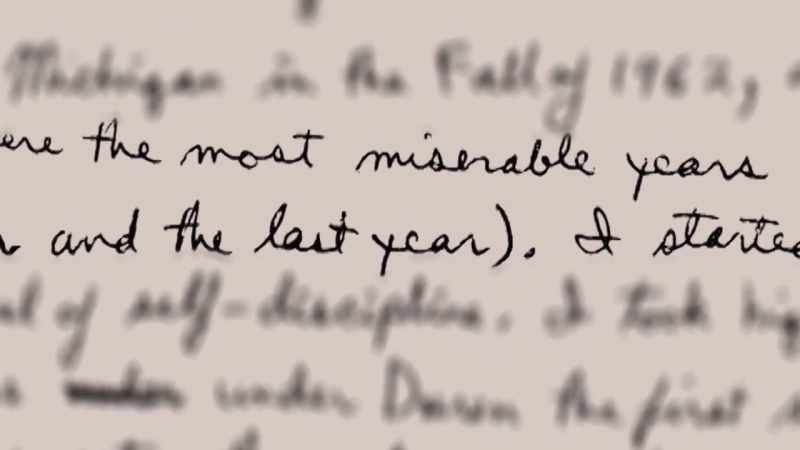 Michigan in the Fall of 1962,
ere the most miserable years
and the last year). I started
of self-discipline. I took
under Duren the first